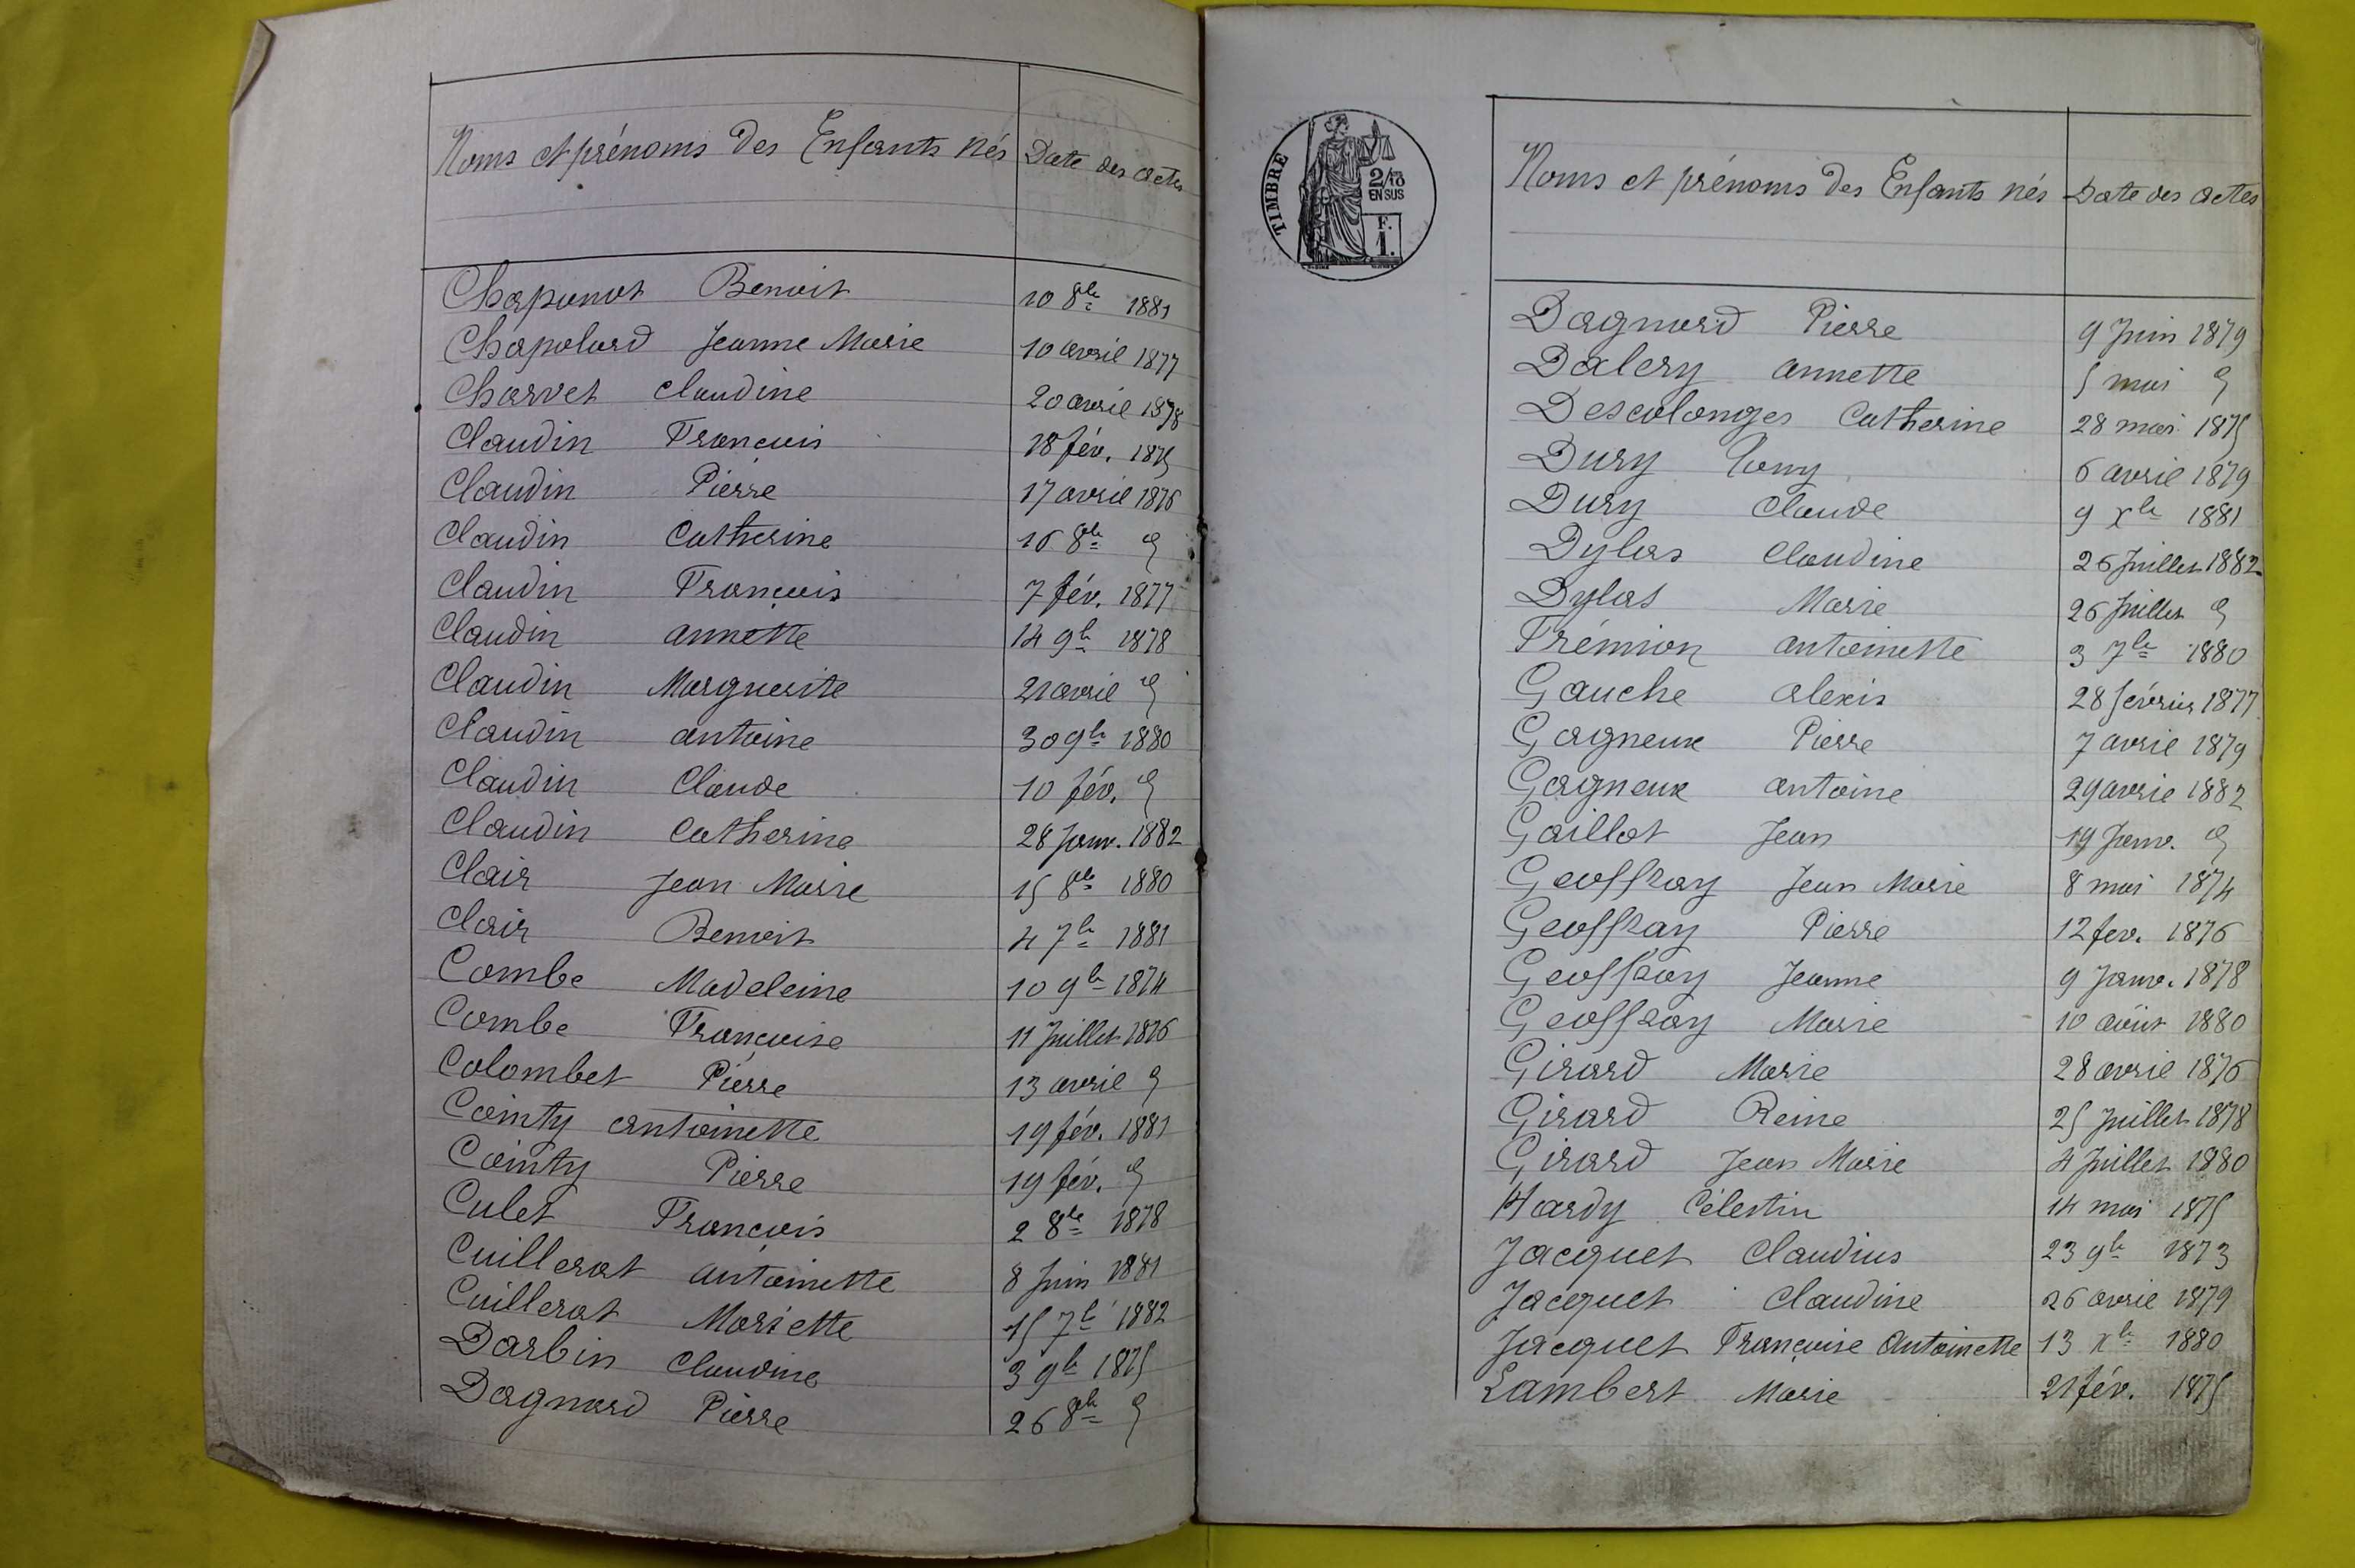 Noms et prénoms des Enfants nés Date des actes
Chaponot Benoit 10 8bre 1881
Chapolard Jeanne Marie 10 avril 1877
Charvet Claudine 20 avril 1878
Claudin François 18 fév. 1875
Claudin Pierre 17 avril 1876
Claudin Catherine 16 8bre d
Claudin François 7 fév. 1877
Claudin Annette 14 9b 1878
Claudin Marguerite 21 avril d
Claudin Antoine 30 9b 1880
Claudin Claude 10 fév. d
Claudin Catherine 28 Janv. 1882
Clair Jean Marie 15 8bre 1880
Clair Benoit 4 7b 1881
Combe Madeleine 10 9b 1874
Combe Françoise 11 Juillet 1876
Colombet Pierre 13 avril d
Cointy Antoinette 19 fév. 1881
Cointy Pierre 19 fév. d
Culet François 2 8bre 1878
Cuillerat Antoinette 8 Juin 1881
Cuillerat Mariette 15 7b 1882
Darbin Claudine 3 9b 1875
Dagnard Pierre 26 8bre d
TIMBRE
2/10
EN SUS
F.
1.
Noms et prénoms des Enfants nés Date des actes
Dagnard Pierre 9 Juin 1879
Dalery Annette 5 mai d
Descolonges Catherine 28 mai 1875
Dury Tony 6 avril 1879
Dury Claude 9 Xb 1881
Dylas Claudine 26 Juillet 1882
Dylas Marie 26 Juillet d
Frémion Antoinette 3 7b 1880
Gauche Alexis 28 février 1877
Gagneux Pierre 7 avril 1879
Gagneux Antoine 29 avril 1882
Gaillot Jean 19 Janv. d
Geoffray Jean Marie 8 mai 1874
Geoffray Pierre 12 fev. 1876
Geoffray Jeanne 9 Janv. 1878
Geoffray Marie 10 août 1880
Girard Marie 28 avril 1876
Girard Reine 25 Juillet 1878
Girard Jean Marie 4 Juillet 1880
Hardy Célestin 14 mai 1875
Jacquet Claudius 23 9b 1873
Jacquet Claudine 26 avril 1879
Jacquet Françoise Antoinette 13 Xb 1880
Lambert Marie 21 fév. 1875